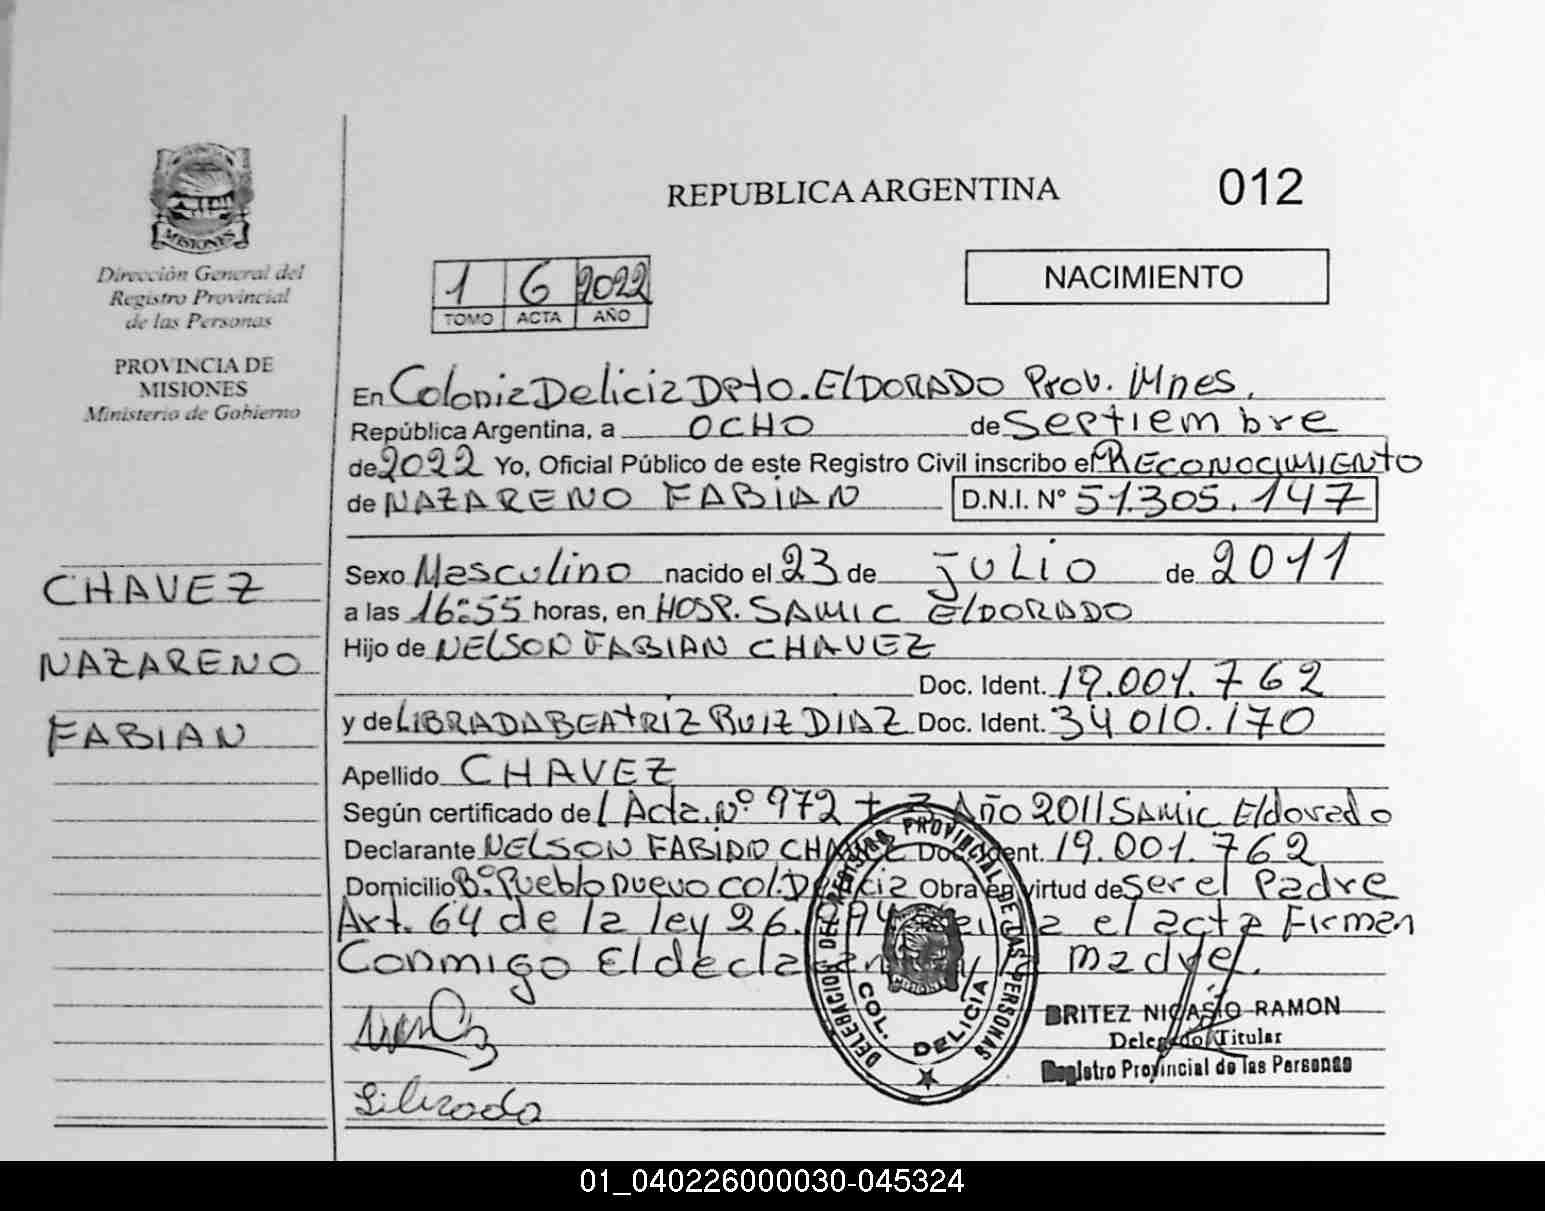 REPUBLICA ARGENTINA
012
MISIONES
Dirección General del
Registro Provincial
de las Personas
PROVINCIA DE
MISIONES
Ministerio de Gobierno
NACIMIENTO
1 6 2022
TOMO ACTA AÑO
En Colonia Delicia Dpto. ElDORADO Prov. Mnes.
República Argentina, a OCHO de Septiembre
de 2022 Yo, Oficial Público de este Registro Civil inscribo el RECONOCIMIENTO
de NAZARENO FABIAN D.N.I. N° 51.305.147
CHAVEZ
NAZARENO
FABIAN
Sexo Masculino nacido el 23 de julio de 2011
a las 16:55 horas, en HOSP. SAMIC ElDORADO
Hijo de NELSON FABIAN CHAVEZ
Doc. Ident. 19.001.762
y de LIBRADA BEATRIZ RUIZ DIAZ Doc. Ident. 34010.170
Apellido CHAVEZ
Según certificado de l Acta. Nº 972 t 3 Año 2011 SAMIC Eldorado
Declarante NELSON FABIAN CHAVEZ Doc. Ident. 19.001.762
Domicilio Bº. Pueblo nuevo COL. Delicia Obra en virtud de ser el Padre
Art. 64 de la ley 26. el acta Firman
Conmigo El declarante y la madre.
Librada
DELEGACION DEL REGISTRO PROVINCIAL DE LAS PERSONAS
COL. DELICIA
BRITEZ NICASIO RAMON
Delegado Titular
Registro Provincial de las Personas
01_040226000030-045324